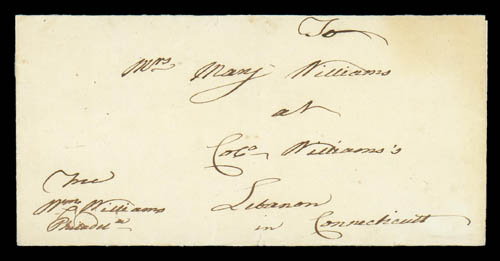 To
Mrs Mary Williams
at
Colo Williams's
Lebanon
in Connecticutt
Free
Wm Williams
Philadela